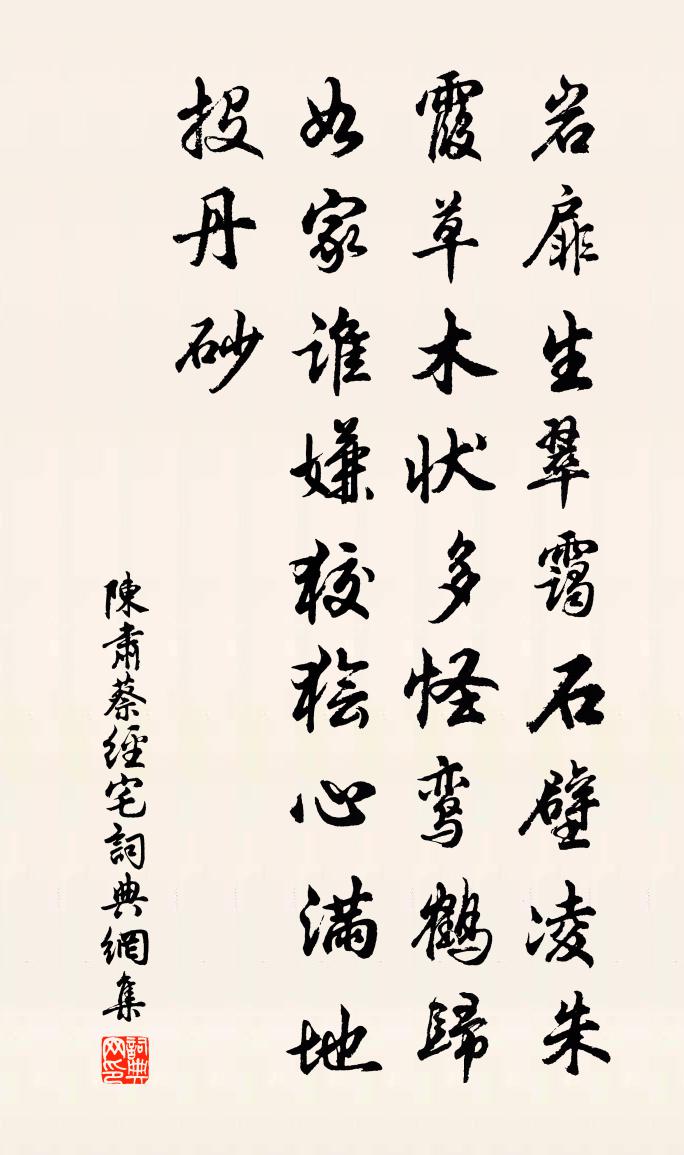 岩扉生翠霭石壁凌朱
霞草木状多怪鸾鹤歸
如家谁嫌狡狯心满地
投丹砂
陳肅蔡經宅詞典網集
詞典网印